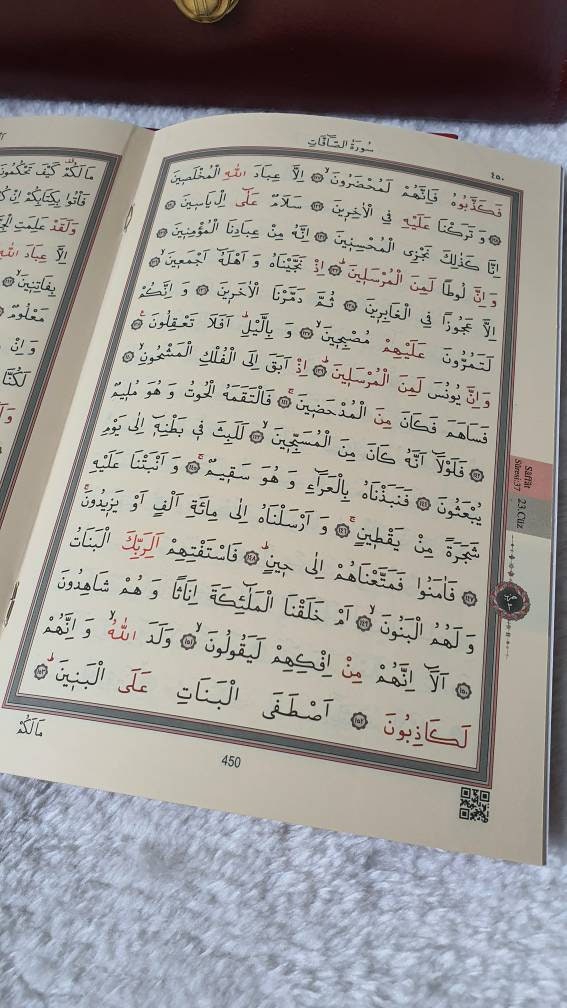 ٤٥٠ سُورَةُ الصَّٓافَّاتِ
فَكَذَّبُوهُ فَاِنَّهُمْ لَمُحْضَرُونَۙ ﴿١٢٧﴾ اِلَّا عِبَادَ اللّٰهِ الْمُخْلَصِينَ
﴿١٢٨﴾ وَ تَرَكْنَا عَلَيْهِ فِي الْاٰخِرِينَۙ ﴿١٢٩﴾ سَلَامٌ عَلٰٓى اِلْ يَاسِينَ ﴿١٣٠﴾
اِنَّا كَذٰلِكَ نَجْزِي الْمُحْسِنِينَ ﴿١٣١﴾ اِنَّهُ مِنْ عِبَادِنَا الْمُؤْمِنِينَ ﴿١٣٢﴾
وَ اِنَّ لُوطًا لَمِنَ الْمُرْسَلِينَۜ ﴿١٣٣﴾ اِذْ نَجَّيْنَاهُ وَ اَهْلَهُٓ اَجْمَعِينَۙ ﴿١٣٤﴾
اِلَّا عَجُوزًا فِي الْغَابِرِينَ ﴿١٣٥﴾ ثُمَّ دَمَّرْنَا الْاٰخَرِينَ ﴿١٣٦﴾ وَ اِنَّكُمْ
لَتَمُرُّونَ عَلَيْهِمْ مُصْبِحِينَۙ ﴿١٣٧﴾ وَ بِالَّيْلِۜ اَفَلَا تَعْقِلُونَ۟ ﴿١٣٨﴾
وَ اِنَّ يُونُسَ لَمِنَ الْمُرْسَلِينَۜ ﴿١٣٩﴾ اِذْ اَبَقَ اِلَى الْفُلْكِ الْمَشْحُونِۙ ﴿١٤٠﴾
فَسَاهَمَ فَكَانَ مِنَ الْمُدْحَضِينَۚ ﴿١٤١﴾ فَالْتَقَمَهُ الْحُوتُ وَ هُوَ مُلِيمٌ
﴿١٤٢﴾ فَلَوْلَٓا اَنَّهُ كَانَ مِنَ الْمُسَبِّحِينَۙ ﴿١٤٣﴾ لَلَبِثَ فِي بَطْنِهِٓ اِلٰى يَوْمِ
يُبْعَثُونَ ﴿١٤٤﴾ فَنَبَذْنَاهُ بِالْعَرَٓاءِ وَ هُوَ سَقِيمٌۚ ﴿١٤٥﴾ وَ اَنْبَتْنَا عَلَيْهِ
شَجَرَةً مِنْ يَقْطِينٍۚ ﴿١٤٦﴾ وَ اَرْسَلْنَاهُ اِلٰى مِائَةِ اَلْفٍ اَوْ يَزِيدُونَۚ
﴿١٤٧﴾ فَاٰمَنُوا فَمَتَّعْنَاهُمْ اِلٰى حِينٍۜ ﴿١٤٨﴾ فَاسْتَفْتِهِمْ اَلِرَبِّكَ الْبَنَاتُ
وَ لَهُمُ الْبَنُونَۙ ﴿١٤٩﴾ اَمْ خَلَقْنَا الْمَلٰٓئِكَةَ اِنَاثًا وَ هُمْ شَاهِدُونَ
﴿١٥٠﴾ اَلَٓا اِنَّهُمْ مِنْ اِفْكِهِمْ لَيَقُولُونَۙ ﴿١٥١﴾ وَلَدَ اللّٰهُۙ وَ اِنَّهُمْ
لَكَاذِبُونَ ﴿١٥٢﴾ اَصْطَفَى الْبَنَاتِ عَلَى الْبَنِينَۜ ﴿١٥٣﴾
مَالَكُمْ
450
Sâffât
Sûresi:37
23.Cüz
مَالَكُمْ۠ كَيْفَ تَحْكُمُونَ
فَأْتُوا بِكِتَابِكُمْ اِنْ
وَلَقَدْ عَلِمَتِ
اِلَّا عِبَادَ اللّٰهِ
بِفَاتِنِينَۙ
مَعْلُومٌۙ
وَ اِنْ